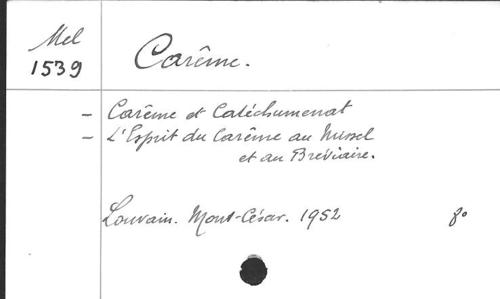 Mel
1539
Carême.
- Carême et Catéchumenat
- L'Esprit du Carême au Missel
et au Bréviaire.
Louvain. Mont-César. 1952 8°